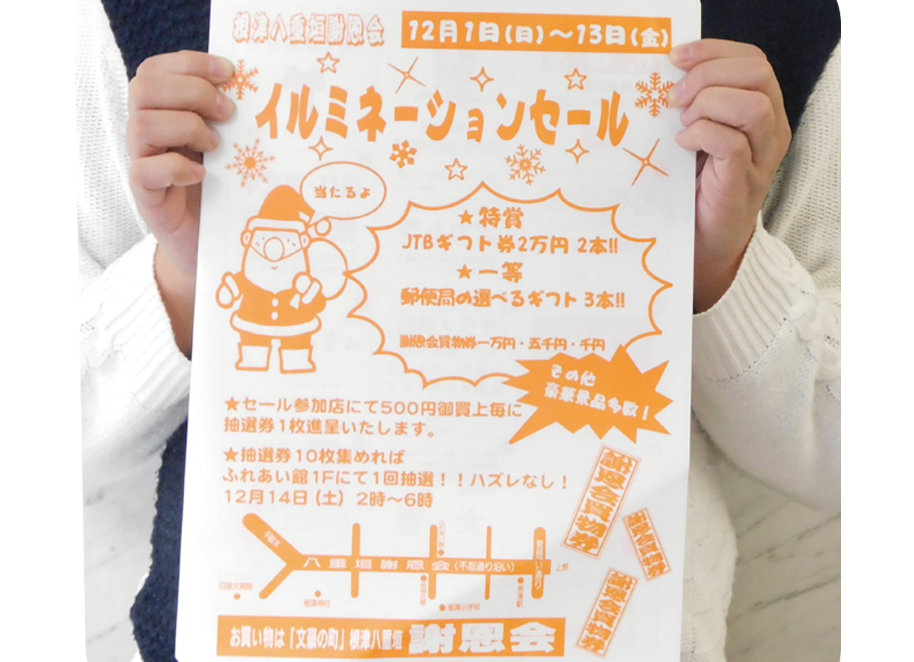 根津八重垣謝恩会
12月1日(日)～13日(金)
イルミネーションセール
当たるよ
★特賞
JTBギフト券2万円 2本!!
★一等
郵便局の選べるギフト 3本!!
謝恩会買物券一万円・五千円・千円
その他
豪華景品多数！
★セール参加店にて500円御買上毎に
抽選券1枚進呈いたします。
★抽選券10枚集めれば
ふれあい館1Fにて1回抽選！！ハズレなし！
12月14日(土) 2時～6時
謝恩会買物券
謝恩会買物券
謝恩会買物券
八重垣謝恩会(不忍通り沿い)
上野
日医大病院
根津神社
根津小学校
根津駅
お買い物は「文豪の町」根津八重垣 謝恩会